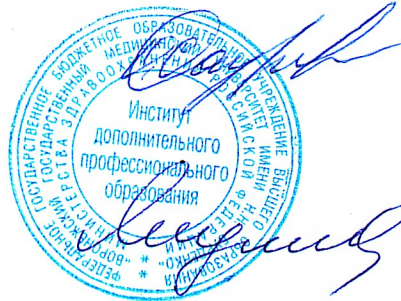 ФЕДЕРАЛЬНОЕ ГОСУДАРСТВЕННОЕ БЮДЖЕТНОЕ ОБРАЗОВАТЕЛЬНОЕ УЧРЕЖДЕНИЕ ВЫСШЕГО ОБРАЗОВАНИЯ
"ВОРОНЕЖСКИЙ ГОСУДАРСТВЕННЫЙ МЕДИЦИНСКИЙ УНИВЕРСИТЕТ ИМЕНИ Н.Н. БУРДЕНКО"
МИНИСТЕРСТВА ЗДРАВООХРАНЕНИЯ РОССИЙСКОЙ ФЕДЕРАЦИИ
Институт
дополнительного
профессионального
образования